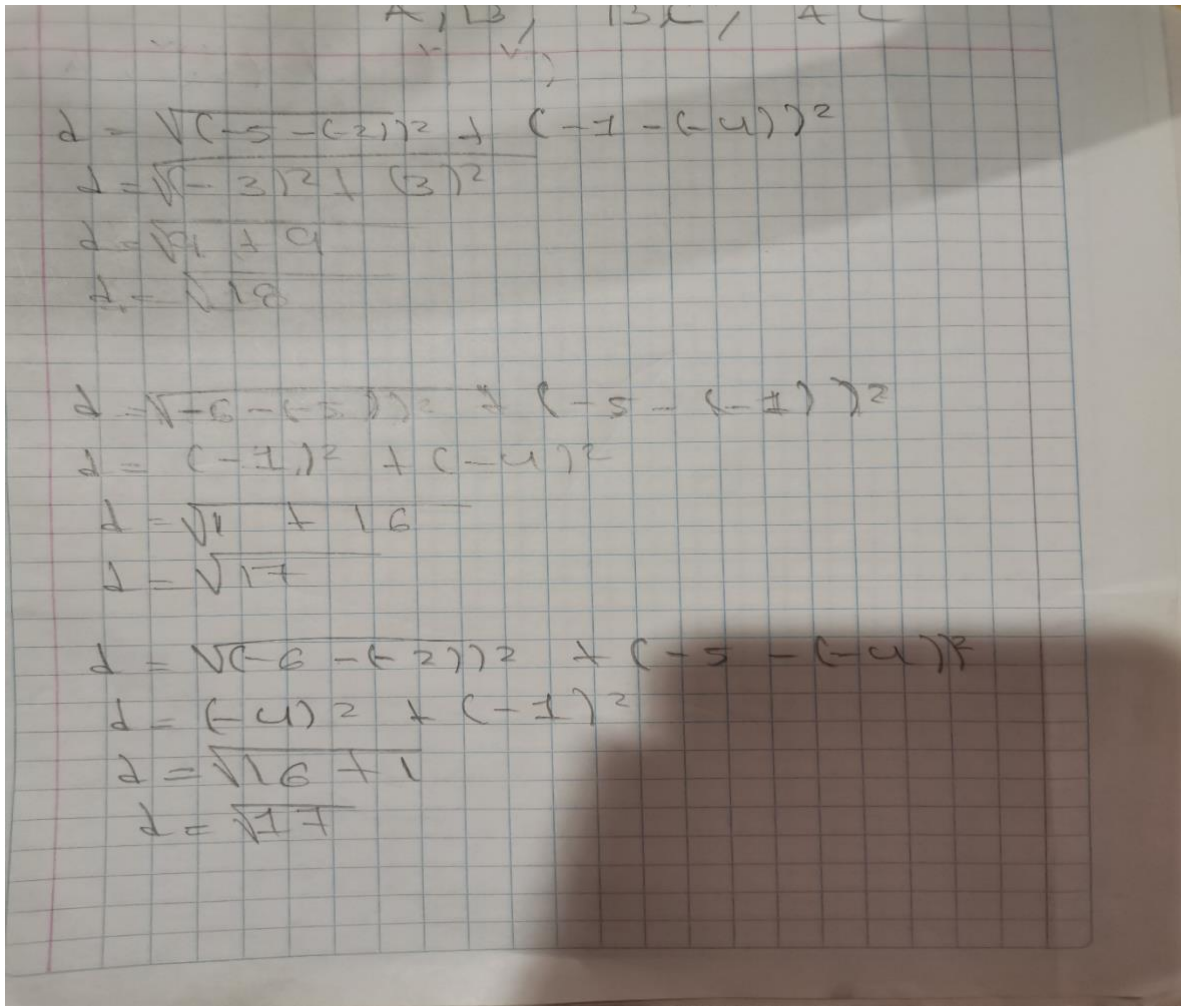 A,B, BC, AC
d = √(-5-(-2))² + (-1-(-4))²
d = √(-3)² + (3)²
d = √9 + 9
d = √18
d = √-6-(-5))² + (-5-(-1))²
d = (-1)² + (-4)²
d = √1 + 16
d = √17
d = √(-6-(-2))² + (-5-(-4))²
d = (-4)² + (-1)²
d = √16 + 1
d = √17